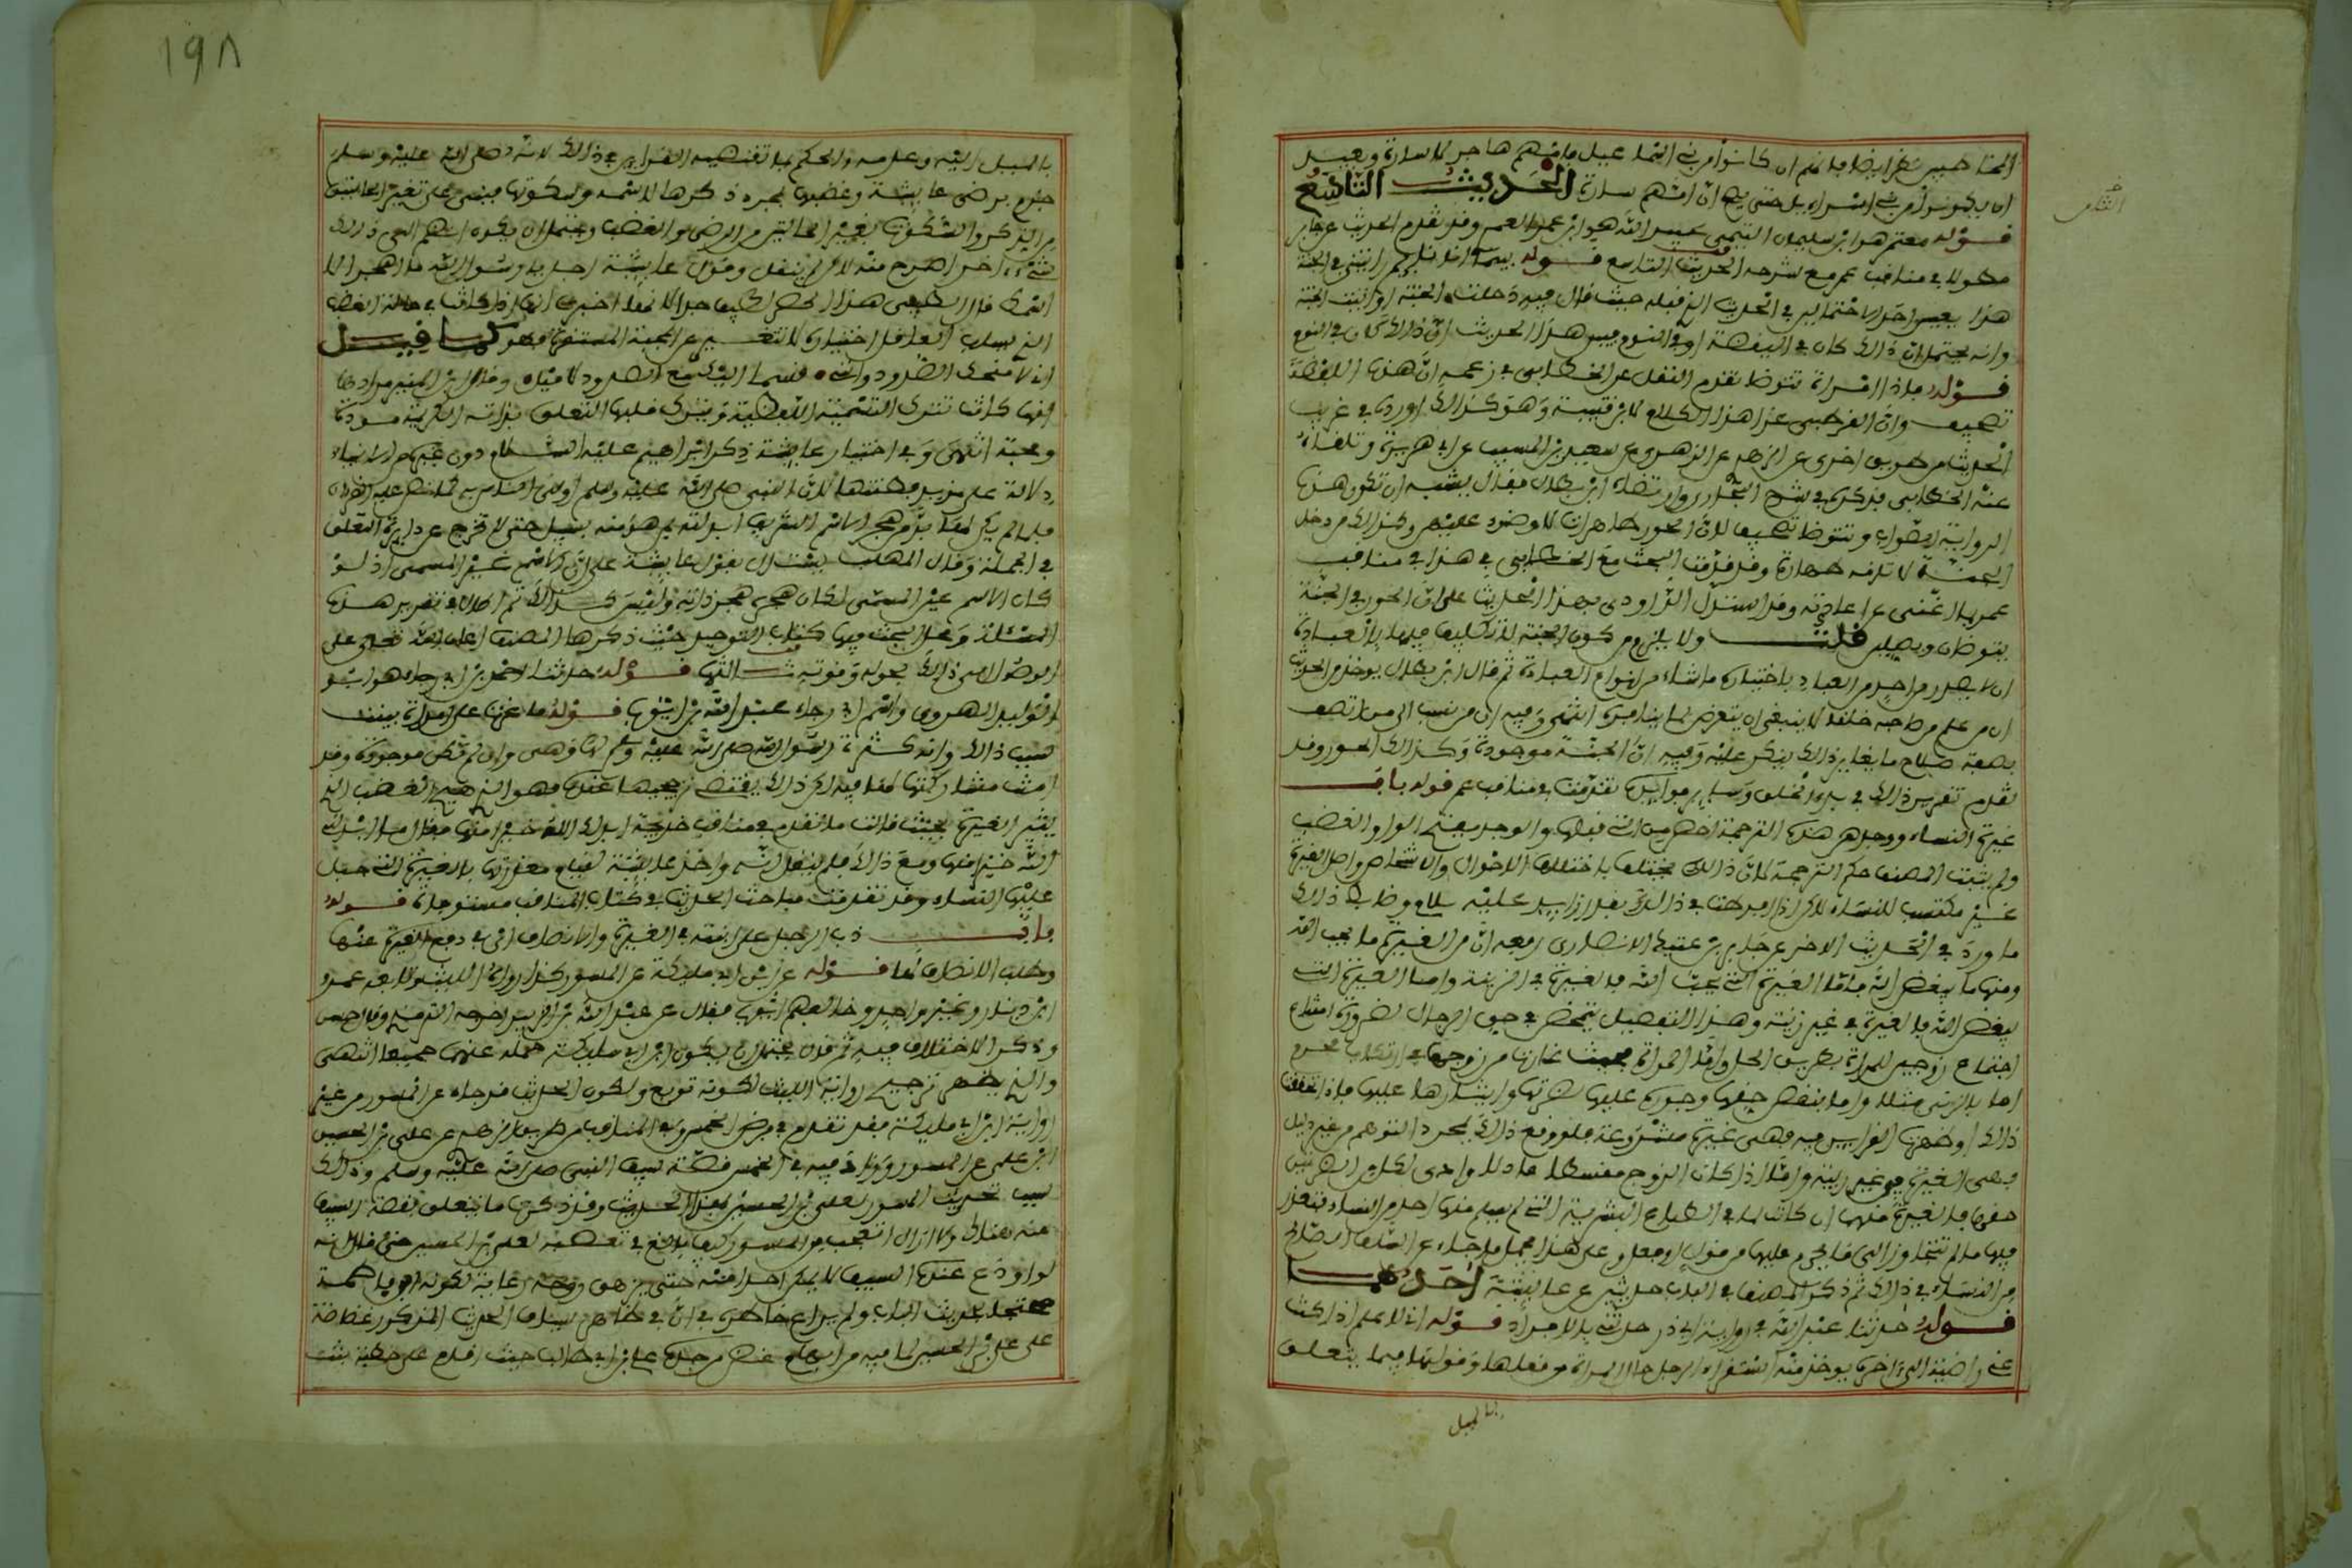 المخاطبين نظر ايضا فانهم ان كانوا من بني اسماعيل فامهم هاجر لا سارة ويبعد
ان يكونوا من بني اسراءيل حتى يصح ان امهم سارة الحديث التاسع
الثامن
قوله معتمر هو ابن سليمان التيمي عبيد الله هو ابن عمر العمري وقد تقدم الحديث عن جابر
مطولا في مناقب عمر مع شرحه الحديث التاسع قوله بينما انا نايم رايتني في الجنة
هذا يعين احد الاحتمالين في الحديث الذي قبله حيث قال فيه دخلت الجنة او اتيت الجنة
وانه يحتمل ان ذلك كان في اليقظة او في النوم فبين هذا الحديث ان ذلك كان في النوم
قوله فاذا امراة تتوضا تقدم النقل عن الخطابي في زعمه ان هذه اللفظة
تصحيف وان القرطبي عزا هذا الكلام لابن قتيبة وهو كذلك اورده في غريب
الحديث من طريق اخرى عن الزهري عن سعيد بن المسيب عن ابي هريرة وتلقاه
عنه الخطابي فذكره في شرح البخاري وارتضاه ابن بطال فقال يشبه ان تكون هذه
الرواية الصواب وتتوضا تصحيف لان الحور طاهرات لا وضوء عليهن وكذلك من دخل
الجنة لا تلزمه طهارة وقد قدمت البحث مع الخطابي في هذا في مناقب
عمر بما اغنى عن اعادته وقد استدل الداودي بهذا الحديث على ان الحور في الجنة
يتوضان ويصلين قلت ولا يلزم من كون الجنة لا تكليف فيها بالعبادة
ان لا يصدر من احد من العباد باختياره ما شاء من انواع العبادة ثم قال ابن بطال يوخذ من الحديث
ان من علم من صاحبه خلقا لا ينبغي ان يتعرض لما ينافره انتهى وفيه ان من نسب الى من اتصف
بصفة صلاح ما يغاير ذلك ينكر عليه وفيه ان الجنة موجودة وكذلك الحور وقد
تقدم تقرير ذلك في بدء الخلق وساير فوايده تقدمت في مناقب عمر قوله باب
غيرة النساء ووجدهن هذه الترجمة اخص من التي قبلها والوجد بفتح الواو الغضب
ولم يثبت المصنف حكم الترجمة لان ذلك يختلف باختلاف الاحوال والاشخاص واصل الغيرة
غير مكتسب للنساء لاكن اذا افرطت في ذلك بقدر زايد عليه تلام وضابط ذلك
ما ورد في الحديث الاخر عن جابر بن عتيك الانصاري رفعه ان من الغيرة ما يحب الله
ومنها ما يبغض الله فاما الغيرة التي يحب الله فالغيرة في الريبة واما الغيرة التي
يبغض الله فالغيرة في غير ريبة وهذا التفصيل يتمحض في حق الرجال لضرورة امتناع
اجتماع زوجين للمراة بطريق الحل واما المراة فحيث غارت من زوجها في ارتكاب محرم
اما بالزنى مثلا واما بنقص حقها وجوره عليها لضرتها وايثارها عليها فاذا تحققت
ذلك او ظهرت القراين فيه فهي غيرة مشروعة فلو وقع ذلك بمجرد التوهم من غير دليل
فهي الغيرة في غير ريبة واما اذا كان الزوج مقسطا عادلا وادى لكل من الضرتين
حقها فالغيرة منهما ان كانت لما في الطباع البشرية التي لم يسلم منها احد من النساء فتعذر
فيها ما لم تتجاوز الى ما يحرم عليها من قول او فعل وعلى هذا يحمل ما جاء عن السلف الصالح
من النساء في ذلك ثم ذكر المصنف في الباب حديثين عن عايشة احدهما
قوله حدثنا عبيد الله في رواية ابي ذر حدثني بالافراد قوله اني لاعلم اذا كنت
عني راضية الى اخره يوخذ منه استقراء الرجل حال المراة من فعلها وقولها فيما يتعلق
بالميل
١٩٨
بالميل اليه وعدمه والحكم بما تقتضيه القراين في ذلك لانه صلى الله عليه وسلم
جزم برضى عايشة وغضبها بمجرد ذكرها لاسمه وسكوتها فبنى على تغير الحالتين
من الذكر والسكوت تغير الحالتين من الرضى والغضب ويحتمل ان يكون انضم الى ذلك
شيء اخر اصرح منه لاكن لم ينقل وقول عايشة اجل يا رسول الله ما اهجر الا
اسمك قال الطيبي هذا الحصر لطيف جدا لانها اخبرت انها اذا كانت في حالة الغضب
الذي يسلب العاقل اختياره لا تتغير عن المحبة المستقرة فهو كما قيل
اني لامنحك الصدود وانني قسما اليك مع الصدود لاميل وقال ابن المنير مرادها
انها كانت تترك التسمية اللفظية ولا يترك قلبها التعلق بذاته الكريمة مودة
ومحبة انتهى وفي اختيار عايشة ذكر ابراهيم عليه السلام دون غيره من الانبياء
دلالة على مزيد فطنتها لان النبي صلى الله عليه وسلم اولى الناس به كما نص عليه القرءان
فلما لم يكن لها بد من هجر الاسم الشريف ابدلته بمن هو منه بسبيل حتى لا تخرج عن دايرة التعلق
في الجملة وقال المهلب يستدل بقول عايشة على ان الاسم غير المسمى اذ لو
كان الاسم عين المسمى لكان هجره هجر ذاته وليس كذلك ثم اطال في تقرير هذه
المسئلة ومحل البحث فيها كتاب التوحيد حيث ذكرها المصنف اعان الله تعالى على
الوصول الى ذلك بحوله وقوته ثانيها قوله حدثنا احمد بن ابي رجاء هو ابو
الوليد الهروي واسم ابي رجاء عبد الله بن ايوب قوله ما غرت على امراة بينت
سبب ذلك وانه كثرة رسول الله صلى الله عليه وسلم لها وهي وان لم تكن موجودة وقد
امنت مشاركتها لها فيه لكن ذلك يقتضي ترجيحها عنده فهو الذي هيج الغضب الذي
يثير الغيرة بحيث قالت ما تقدم في مناقب خديجة ابدلك الله خيرا منها فقال ما ابدلني
الله خيرا منها ومع ذلك فلم ينقل انه واخذ عايشة لقيام معذرتها بالغيرة التي جبل
عليها النساء وقد تقدمت مباحث الحديث في كتاب المناقب مستوفاة قوله
باب ذب الرجل عن ابنته في الغيرة والانصاف اي في دفع الغيرة عنها
وطلب الانصاف لها قوله عن ابن ابي مليكة عن المسور كذا رواه الليث وتابعه عمرو
ابن دينار وغير واحد وخالفهم ايوب فقال عن عبد الله بن الزبير اخرجه الترمذي وقال حسن
وذكر الاختلاف فيه ثم قال يحتمل ان يكون ابن ابي مليكة حمله عنهما جميعا انتهى
والذي يظهر ترجيح رواية الليث لكونه توبع ولكون الحديث قد جاء عن المسور من غير
رواية ابن ابي مليكة فقد تقدم في فرض الخمس وفي المناقب من طريق الزهري عن علي بن الحسين
ابن علي عن المسور وزاد فيه في الخمس قصة سيف النبي صلى الله عليه وسلم وذلك
سبب تحديث المسور لعلي بن الحسين بهذا الحديث وقد ذكرت ما يتعلق بقصة السيف
عنه هناك ولا ازال اتعجب من المسور كيف بالغ في تعصبه لعلي بن الحسين حتى قال انه
لو اودع عنده السيف لا يمكن احدا منه حتى تزهق روحه رعاية لكونه ابن ابن فاطمة
محتجا بحديث الباب ولم يراع خاطره في ان في ظاهر سياق الحديث المذكور غضاضة
على علي بن الحسين لما فيه من ايهام غض من جده علي بن ابي طالب حيث اقدم على خطبة بنت